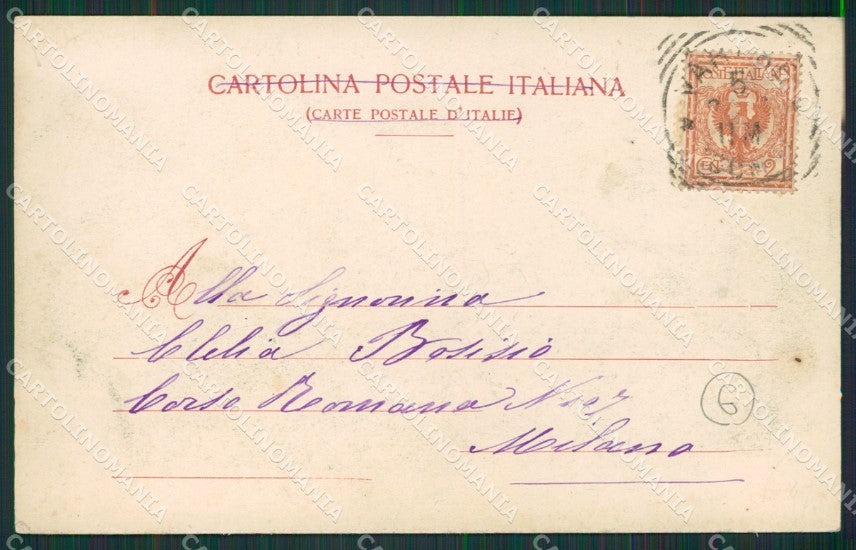 CARTOLINA POSTALE ITALIANA
(CARTE POSTALE D'ITALIE)
Alla Signorina
Clelia Bosisio
Corso Romana
Milano
6
CARTOLINOMANIA